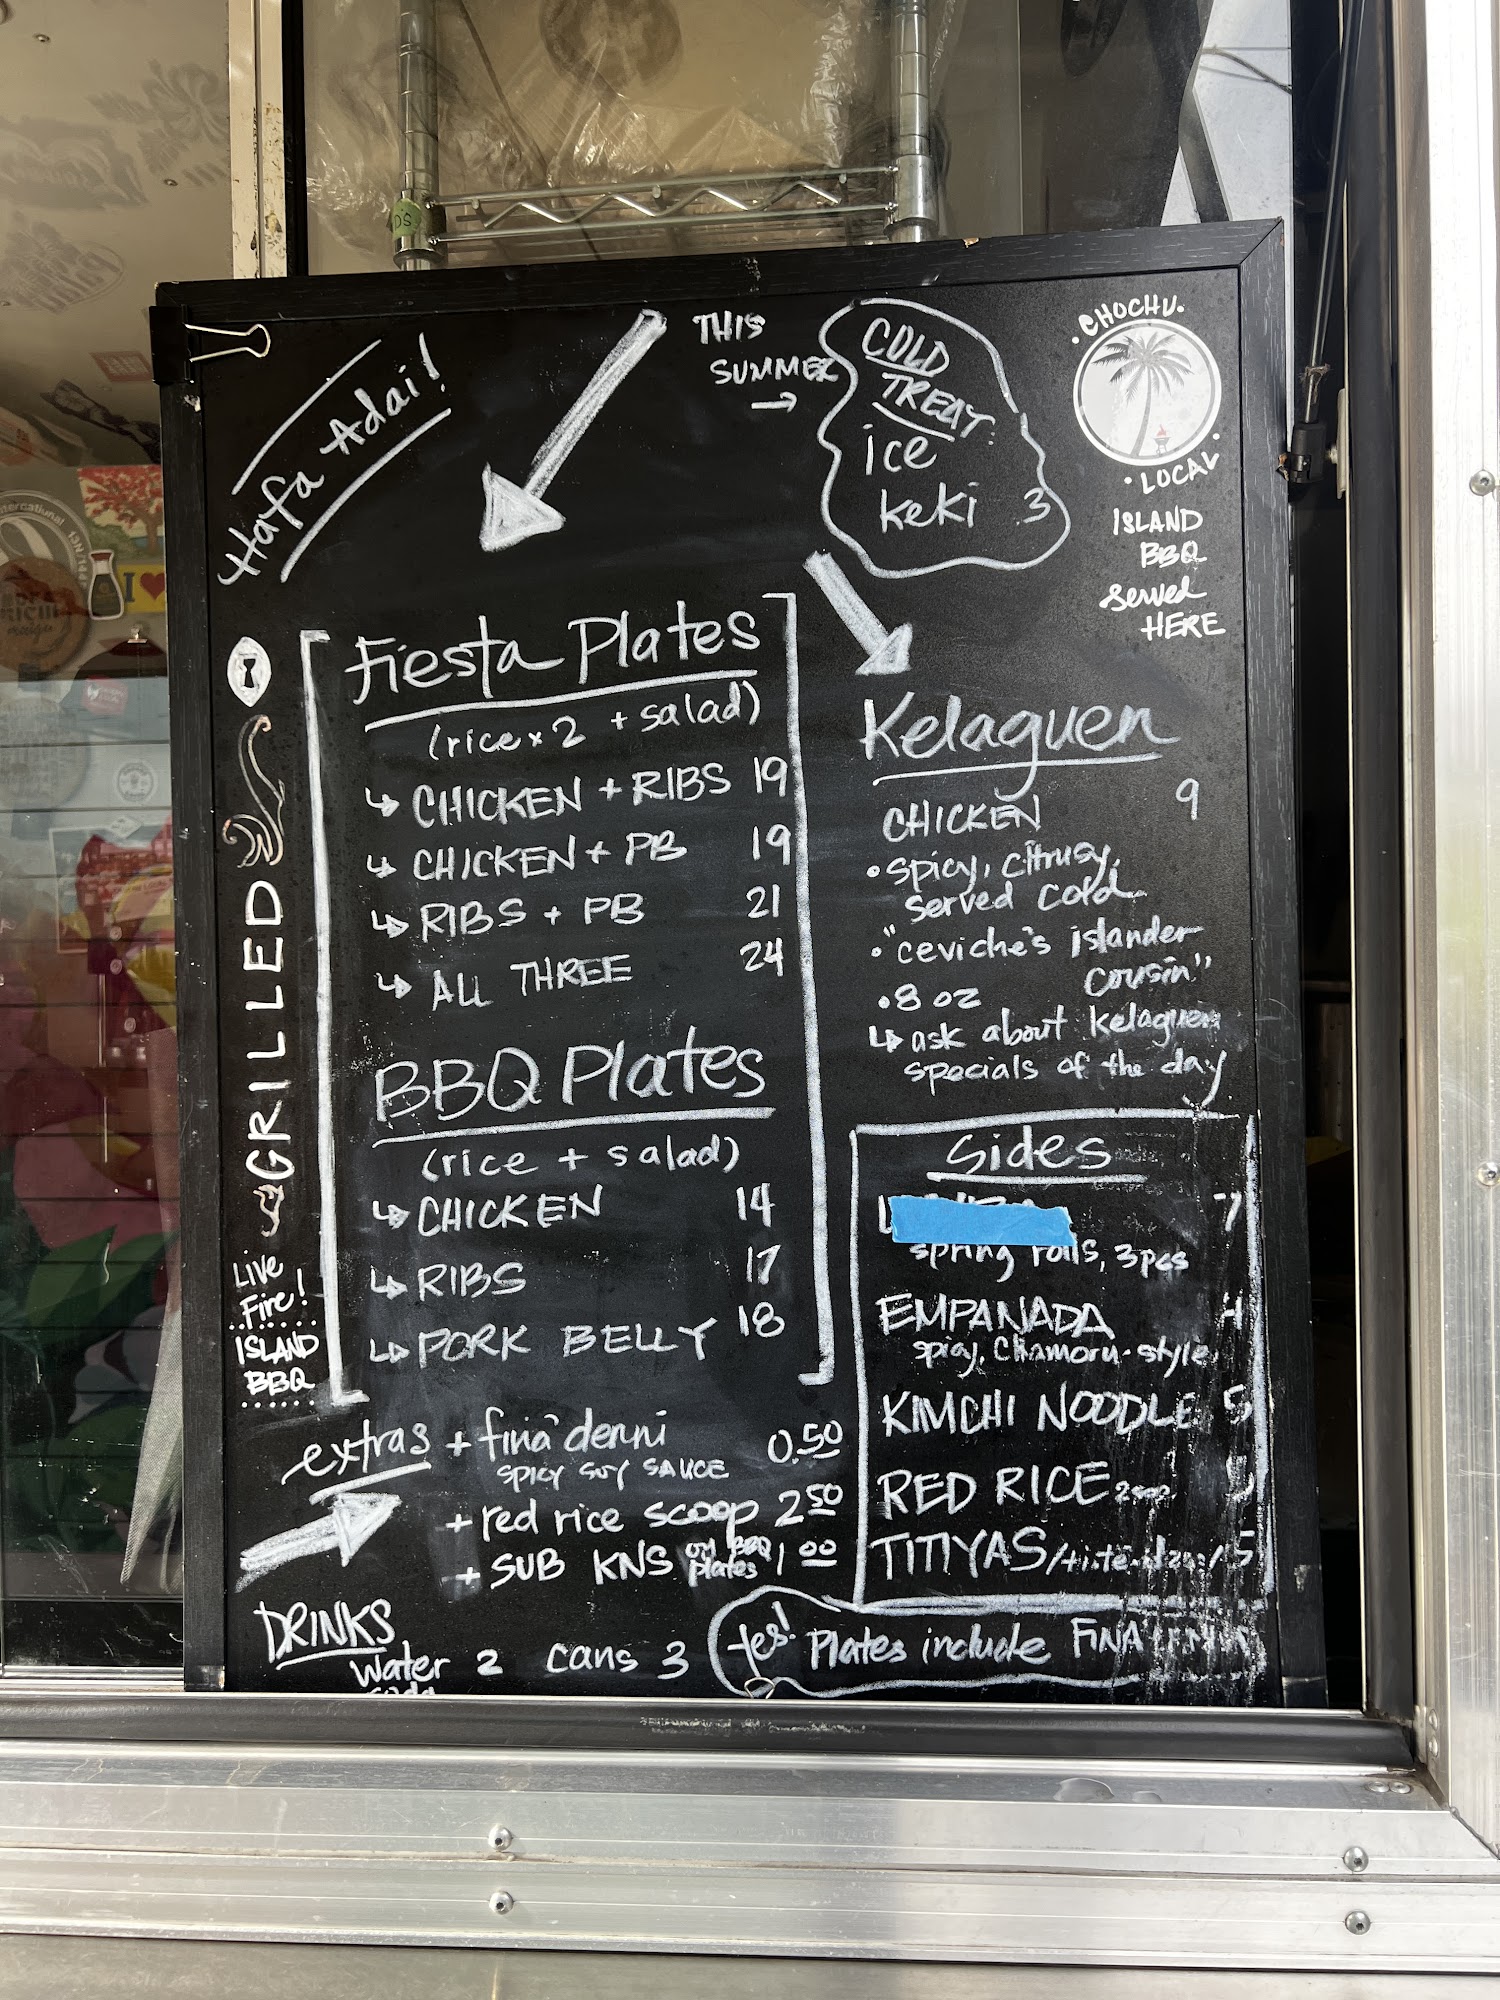 Hafa Adai!
THIS
SUMMER
COLD
TREAT
ice
keki .3
• CHOCHU •
• LOCAL •
ISLAND
BBQ
served
HERE
GRILLED
Live
Fire!
ISLAND
BBQ
Fiesta Plates
(rice x 2 + salad)
CHICKEN + RIBS 19
CHICKEN + PB 19
RIBS + PB 21
ALL THREE 24
BBQ Plates
(rice + salad)
CHICKEN 14
RIBS 17
PORK BELLY 18
Kelaguen
CHICKEN 9
• spicy, citrusy,
served cold
• "ceviche's islander
cousin"
• 8 oz
ask about Kelaguen
specials of the day
Sides
7
spring rolls, 3pcs
EMPANADA 4
spicy, Chamoru-style
KIMCHI NOODLE 5
RED RICE
TITIYAS 5
extras + fina'denni 0.50
spicy soy sauce
+ red rice scoop 2 50
+ SUB KNS on BBQ plates 1 00
DRINKS
water 2 cans 3
soda
Yes! Plates include
I